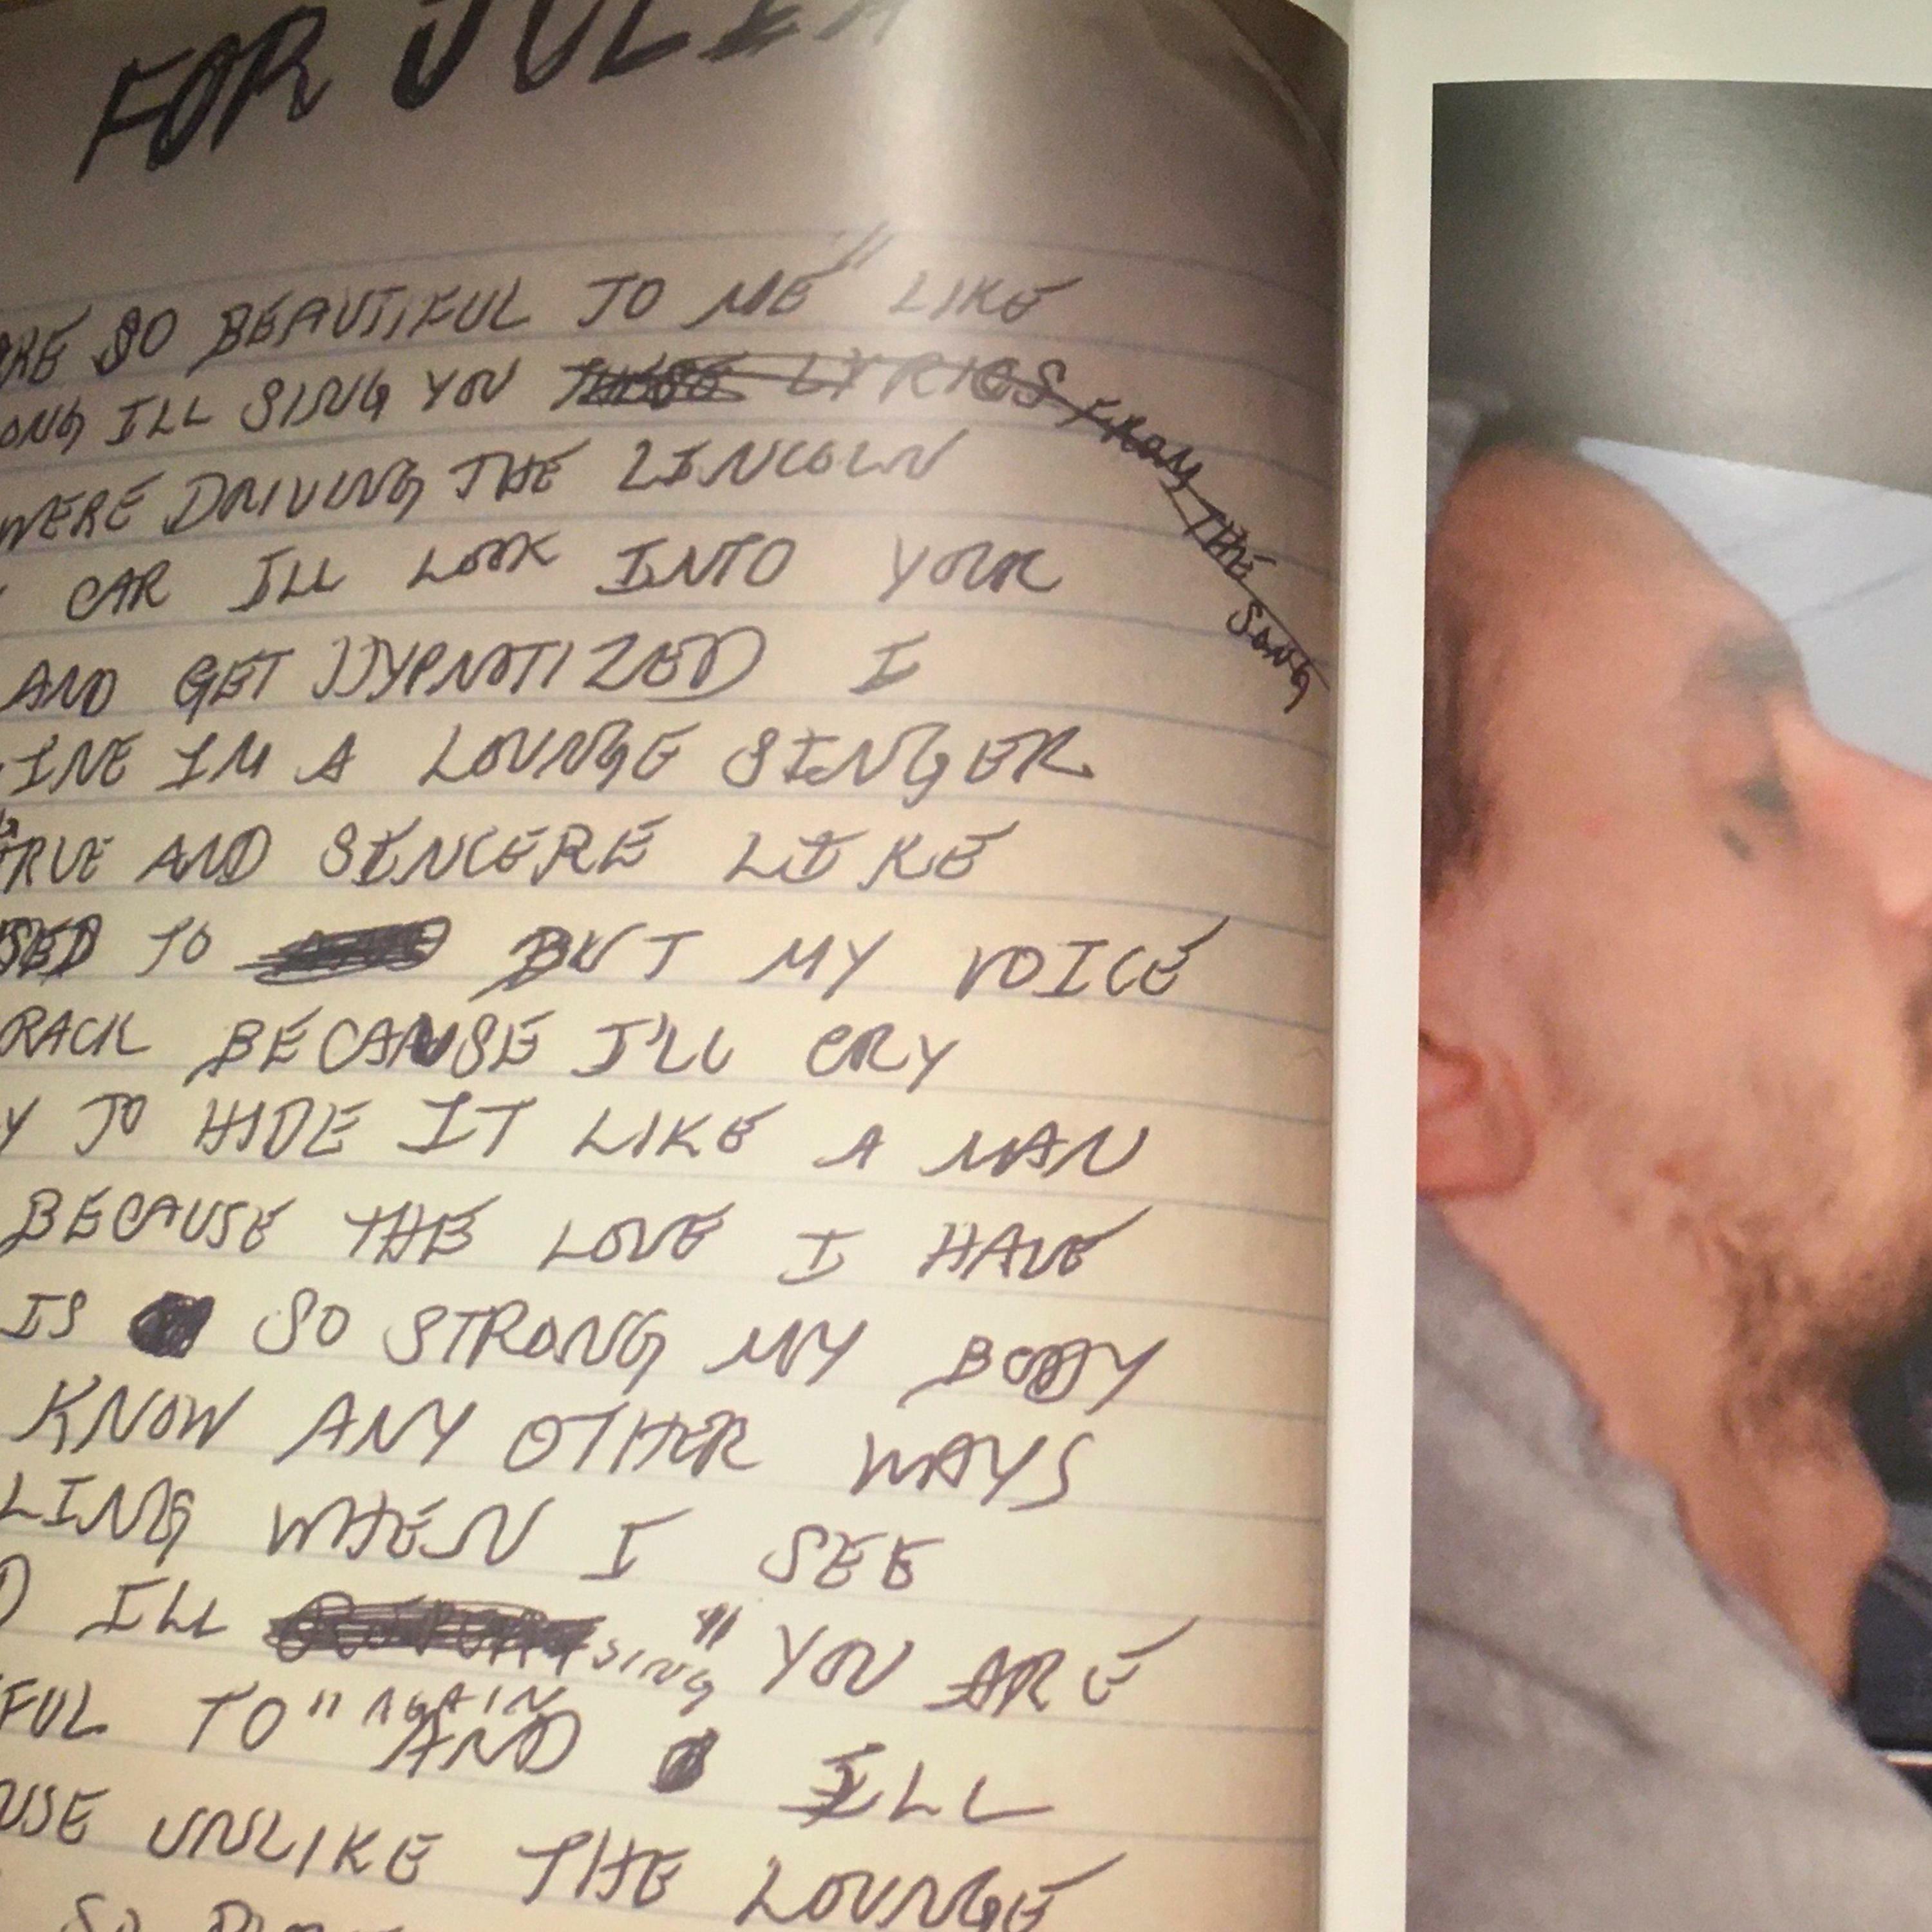 FOR JULIA
ARE SO BEAUTIFUL TO ME" LIKE
ONG ILL SING YOU THESE LYRICS FROM THE SONG
WERE DRIVING THE LINCOLN
CAR ILL LOOK INTO YOUR
AND GET HYPNOTIZED I
INE IM A LOUNGE SINGER
TRUE AND SINCERE LIKE
SED TO BUT MY VOICE
RACK BECAUSE I'LL CRY
Y TO HIDE IT LIKE A MAN
BECAUSE THE LOVE I HAVE
IS SO STRONG MY BODY
KNOW ANY OTHER WAYS
LING WHEN I SEE
D ILL SING "YOU ARE
FUL TO" AGAIN AND ILL
USE UNLIKE THE LOUNGE
SO